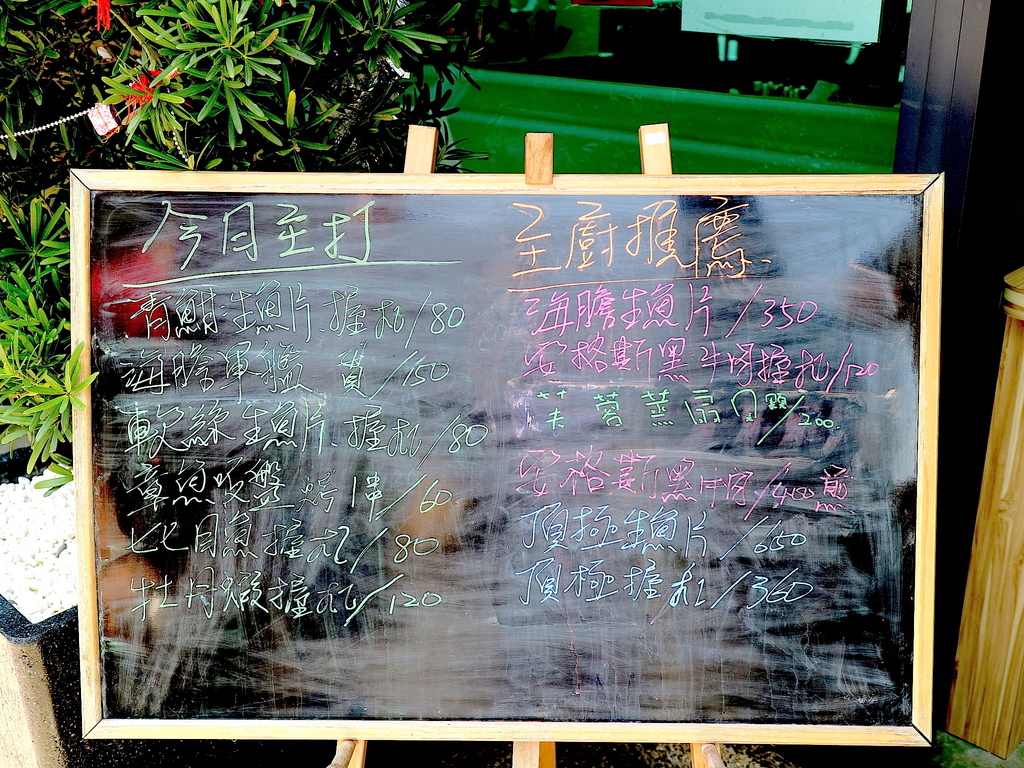 今月主打
青魽生魚片 握札/80
海膽軍艦 貫/150
軟絲生魚片 握札/80
章魚吸盤 烤串/60
比目魚握札/80
牡丹蝦握札/120
主廚推薦
海膽生魚片/350
安格斯黑牛肉握札/120
芙蓉蒸扇貝 顆/200
安格斯黑牛肉/400 煎
頂極生魚片/650
頂極握札/360